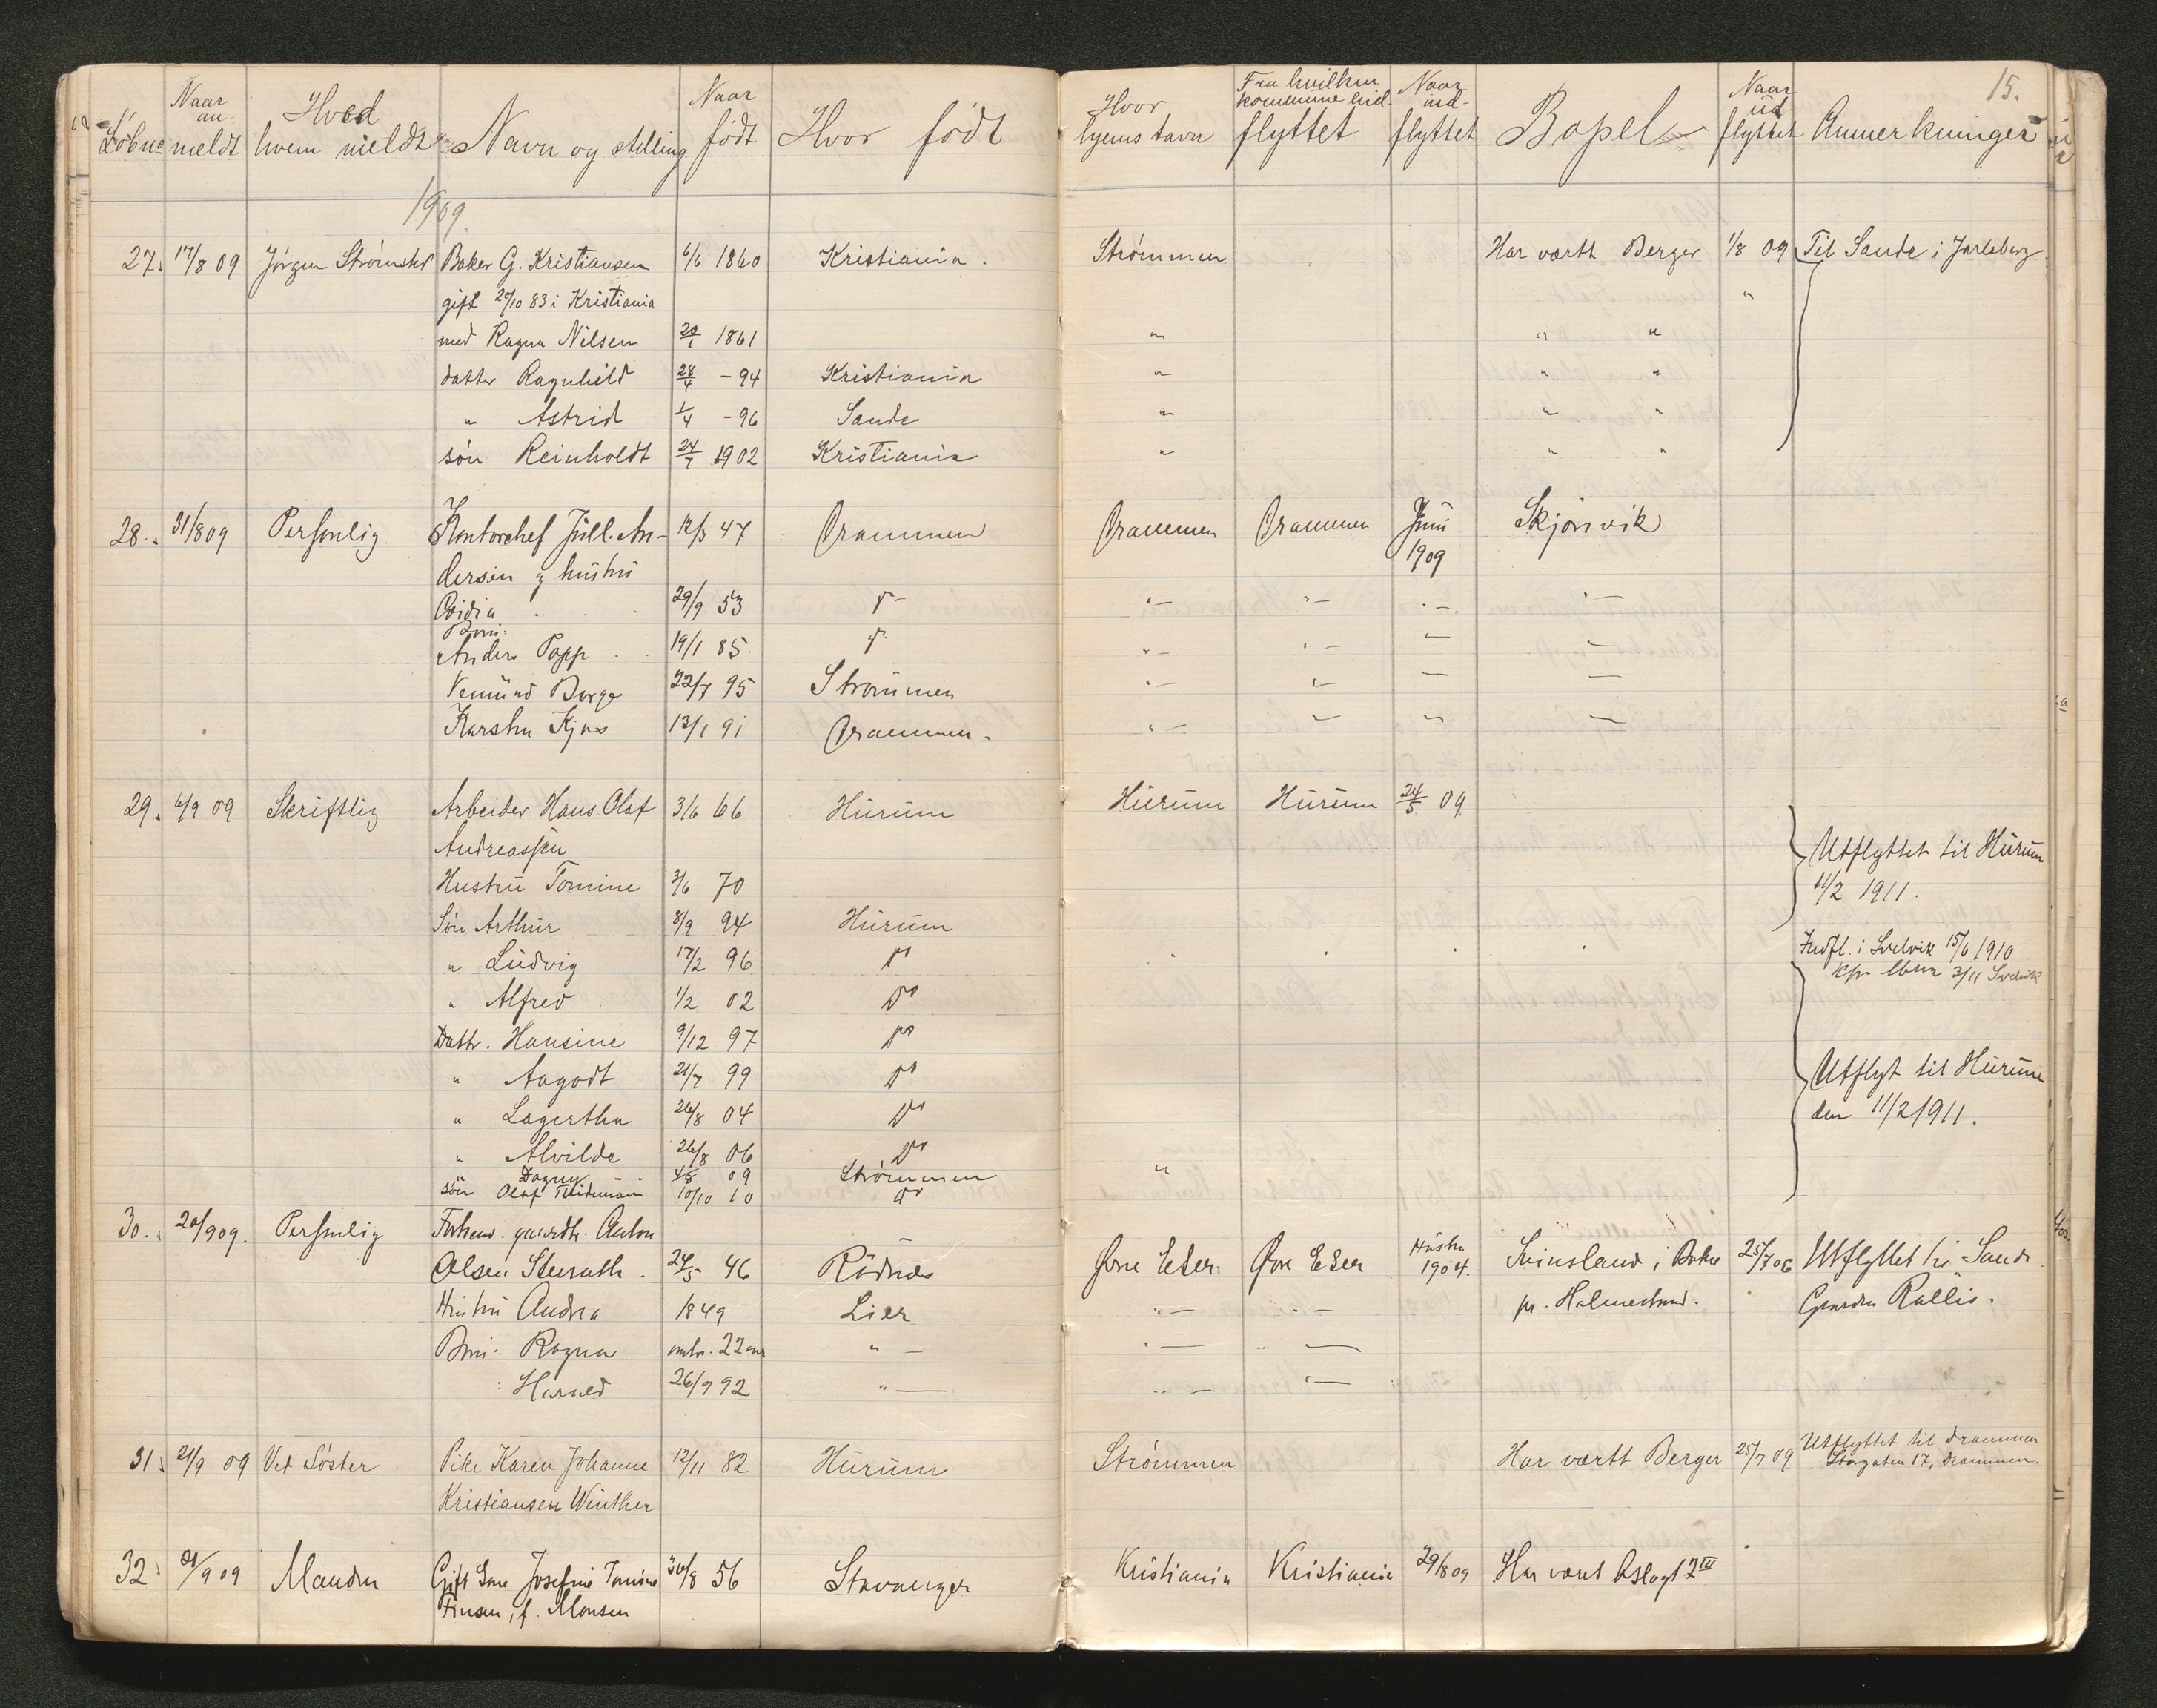 15.
Löbno Naar anmeldt Hved hvem meldt Navn og stilling Naar födt Hvor födt Hvor hjemstavn Fra hvilken kommune indflyttet Naar indflyttet Bopel Naar udflyttet Anmerkninger
1909.
27. 17/8 09 Jörgen Baker G. Kristiansen 6/6 1860 Kristiania. Strömmen Har vært Berger 1/8 09 Til Sande i Jarlsberg
gift 20/10 83 i Kristiania "
med Ragna Nilsen 20/1 1861 " " "
datter Ragnhild 28/4 - 94 Kristiania " " "
" Astrid 1/4 - 96 Sande " " "
sön Reinholdt 24/7 1902 Kristiania " " "
28. 31/8 09 Personlig Kontorchef Jull. An- 12/3 47 Drammen Drammen Drammen Juni 1909 Skjørvik
dersen og hustru
29/9 53
Börn:
Anders Popp 19/1 85
Vemund Borge 22/7 95 Strömmen
Karsten 13/1 91 Drammen.
29. 4/9 09 Skriftlig Arbeider Hans Olaf 3/6 66 Hurum Hurum Hurum 24/5 09
Andreassen Utflyttet til Hurum
Hustru Tomine 3/6 70 11/2 1911.
Sön Arthur 8/9 94 Hurum
Indfl. i Svelvik 15/6 1910
" Ludvig 17/2 96 Do
" Alfred 1/2 02 Do
Dattr. Hansine 9/12 97 Do
" Aagodt 21/7 99 Do Utflyt til Hurum
" Lagertha 26/8 04 Do den 11/2 1911.
" Alvilde 26/8 06 Do
Dagny 4/8 09 Strömmen "
sön Olaf 10/10 10 Do
30. 20/9 09. Personlig Forhenv. gaardbr. Anton
Olsen 24/5 46 Rödnes Øvre Eker Øvre Eker Høsten 1904. i Botne 25/7 06 Utflyttet til Sande
Hustru Andrea 1849 Lier pr. Holmestrand. Gaarden
Börn: Ragna omtr. 22 aar "
: Harald 26/9 92 "
31. 21/9 09 Ved Söster Pike Karen Johanne 12/11 82 Hurum Strömmen Har vært Berger 25/7 09 Utflyttet til Drammen
Kristiansen Winther Storgaten 17, Drammen.
32 21/9 09 Manden Gift Josefine Tomine 30/8 56 Stavanger Kristiania Kristiania 29/8 09 Har vært
Finsen, f. Monsen